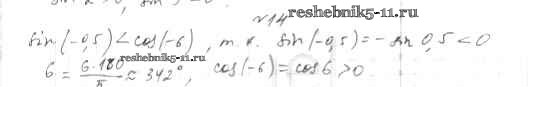 №14 reshebnik5-11.ru
sin(-0,5) < cos(-6), т.к. sin(-0,5) = - sin 0,5 < 0
reshebnik5-11.ru
6 = 6·180/π ≈ 342°, cos(-6) = cos 6 > 0